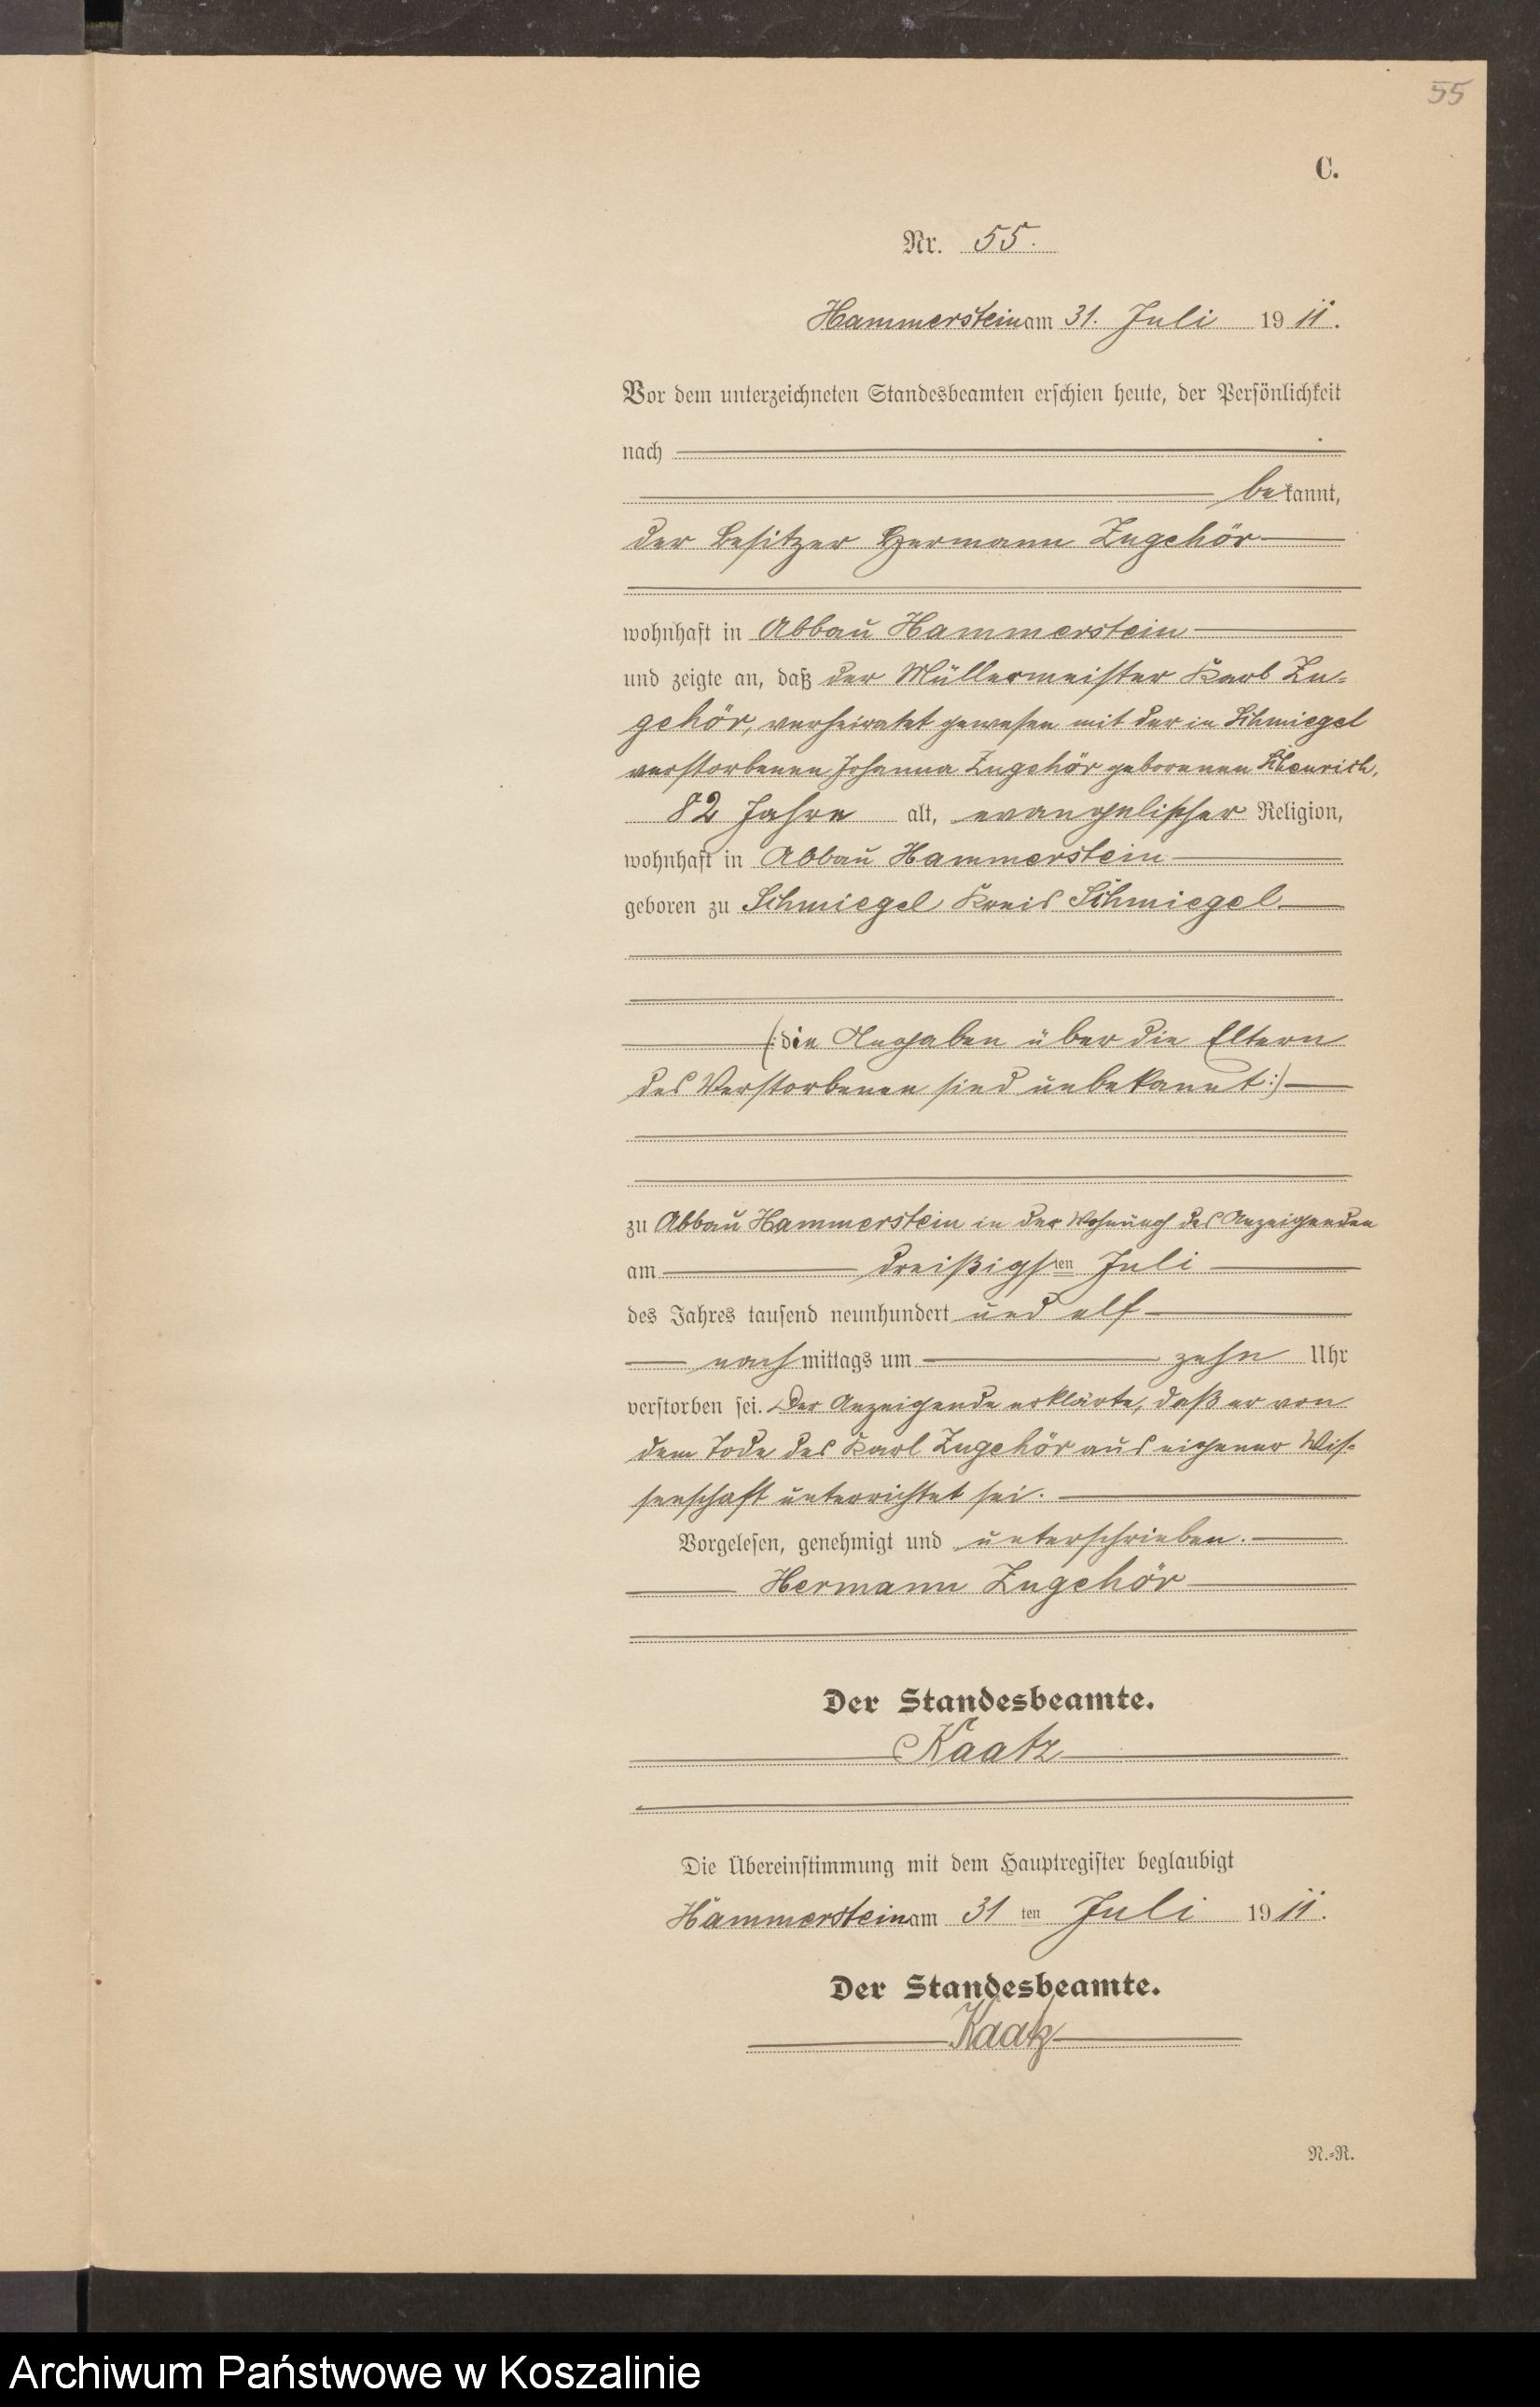 55
C.
Nr. 55.
Hammerstein am 31. Juli 1911.
Vor dem unterzeichneten Standesbeamten erschien heute, der Persönlichkeit
nach
bekannt,
der Besitzer Hermann Zugehör
wohnhaft in Abbau Hammerstein
und zeigte an, daß der Müllermeister Karl Zu-
gehör, verheiratet gewesen mit der in Schmiegel
verstorbenen Johanna Zugehör geborenen
82 Jahre alt, evangelischer Religion,
wohnhaft in Abbau Hammerstein
geboren zu Schmiegel Kreis Schmiegel
(: die Angaben über die Eltern
des Verstorbenen sind unbekannt :)
zu Abbau Hammerstein in der Wohnung des Anzeigenden
am dreißigsten Juli
des Jahres tausend neunhundert und elf
nachmittags um zehn Uhr
verstorben sei. Der Anzeigende erklärte, daß er von
dem Tode des Karl Zugehör aus eigener Wis-
senschaft unterrichtet sei.
Vorgelesen, genehmigt und unterschrieben.
Hermann Zugehör
Der Standesbeamte.
Kaatz
Die Übereinstimmung mit dem Hauptregister beglaubigt
Hammerstein am 31 ten Juli 1911.
Der Standesbeamte.
Kaatz
N.-R.
Archiwum Państwowe w Koszalinie